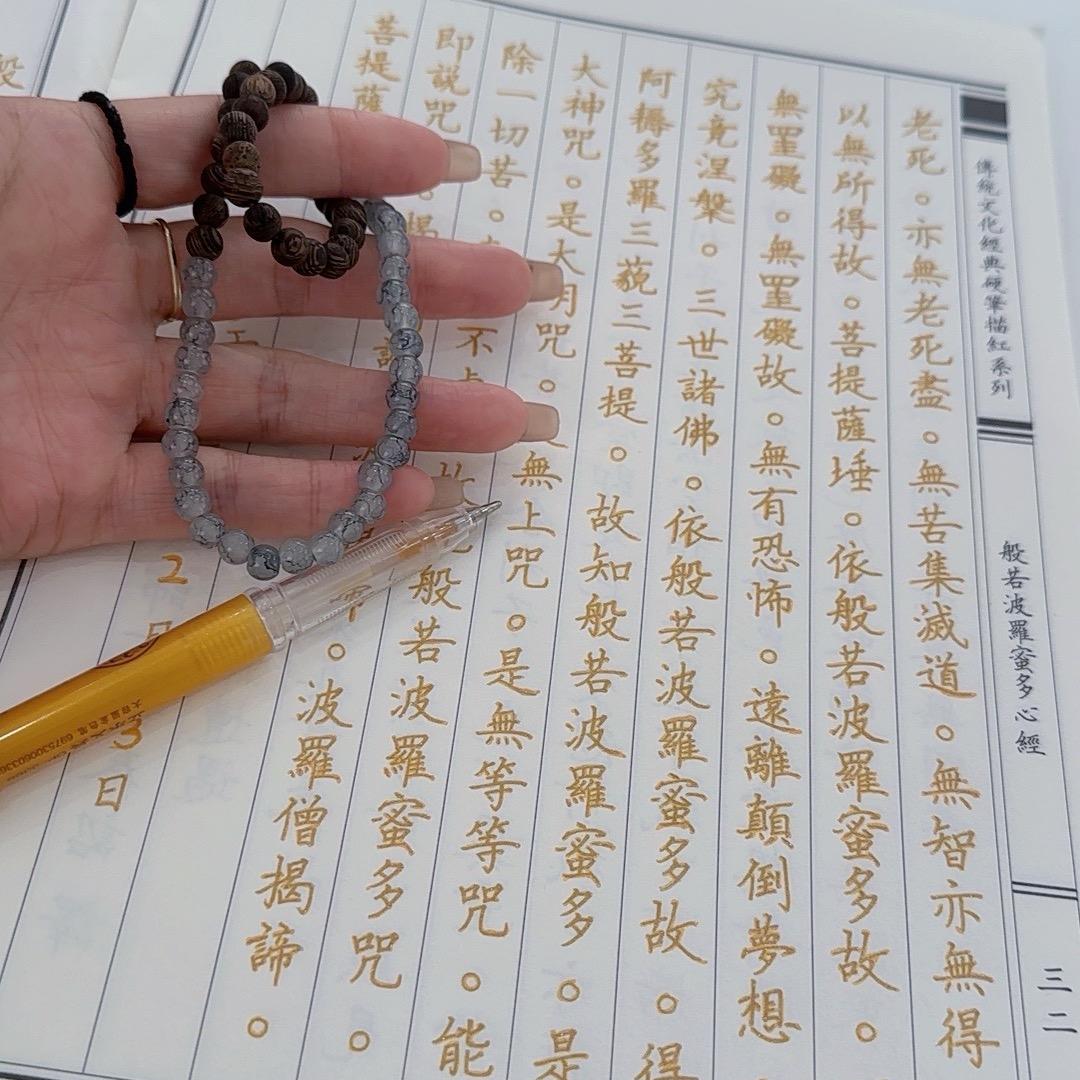 傳統文化經典硬筆描紅系列
般若波羅蜜多心經
三二
老死。亦無老死盡。無苦集滅道。無智亦無得
以無所得故。菩提薩埵。依般若波羅蜜多故。
無罣礙。無罣礙故。無有恐怖。遠離顛倒夢想
究竟涅槃。三世諸佛。依般若波羅蜜多故。得
阿耨多羅三藐三菩提。故知般若波羅蜜多。是
大神咒。是大明咒。是無上咒。是無等等咒。能
除一切苦。
不虛
故說般若波羅蜜多咒。
即說咒
揭
波羅僧揭諦。
菩提薩
2
月
3
日
般
大容量金色笔